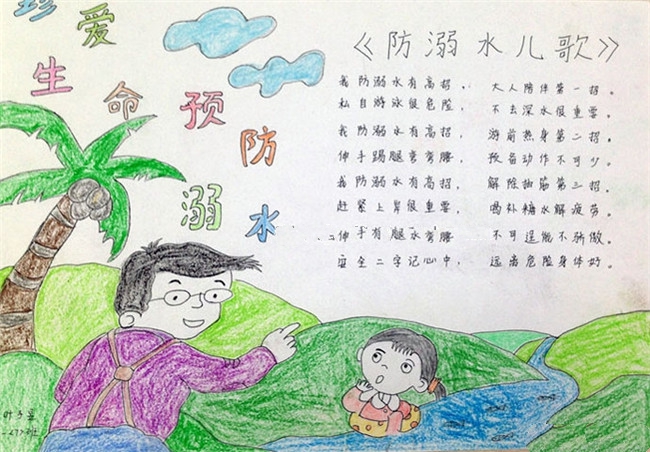 珍爱生命预防溺水
《防溺水儿歌》
我防溺水有高招， 大人陪伴第一招。
私自游泳很危险， 不去深水很重要。
我防溺水有高招， 游前热身第二招。
伸手踢腿弯弯腰， 预备动作不可少。
我防溺水有高招， 解除抽筋第三招。
赶紧上岸很重要， 喝补糖水解疲劳。
伸手有腿水弯腰 不可逞能不骄傲。
安全二字记心中， 远离危险身体好。